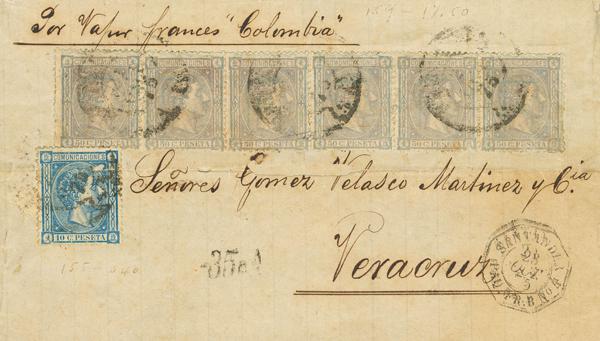 Por Vapor frances "Colombia"
159 - 17.50
COMUNICACIONES COMUNICACIONES COMUNICACIONES COMUNICACIONES COMUNICACIONES COMUNICACIONES
50 C. PESETA 50 C. PESETA 50 C. PESETA 50 C. PESETA 50 C. PESETA 50 C. PESETA
COMUNICACIONES
10 C. PESETA
Señores Gomez Velasco Martinez y Cia
Veracruz
SANTANDER
28
OCT
PAQ. FR. B Nº 4
155 -